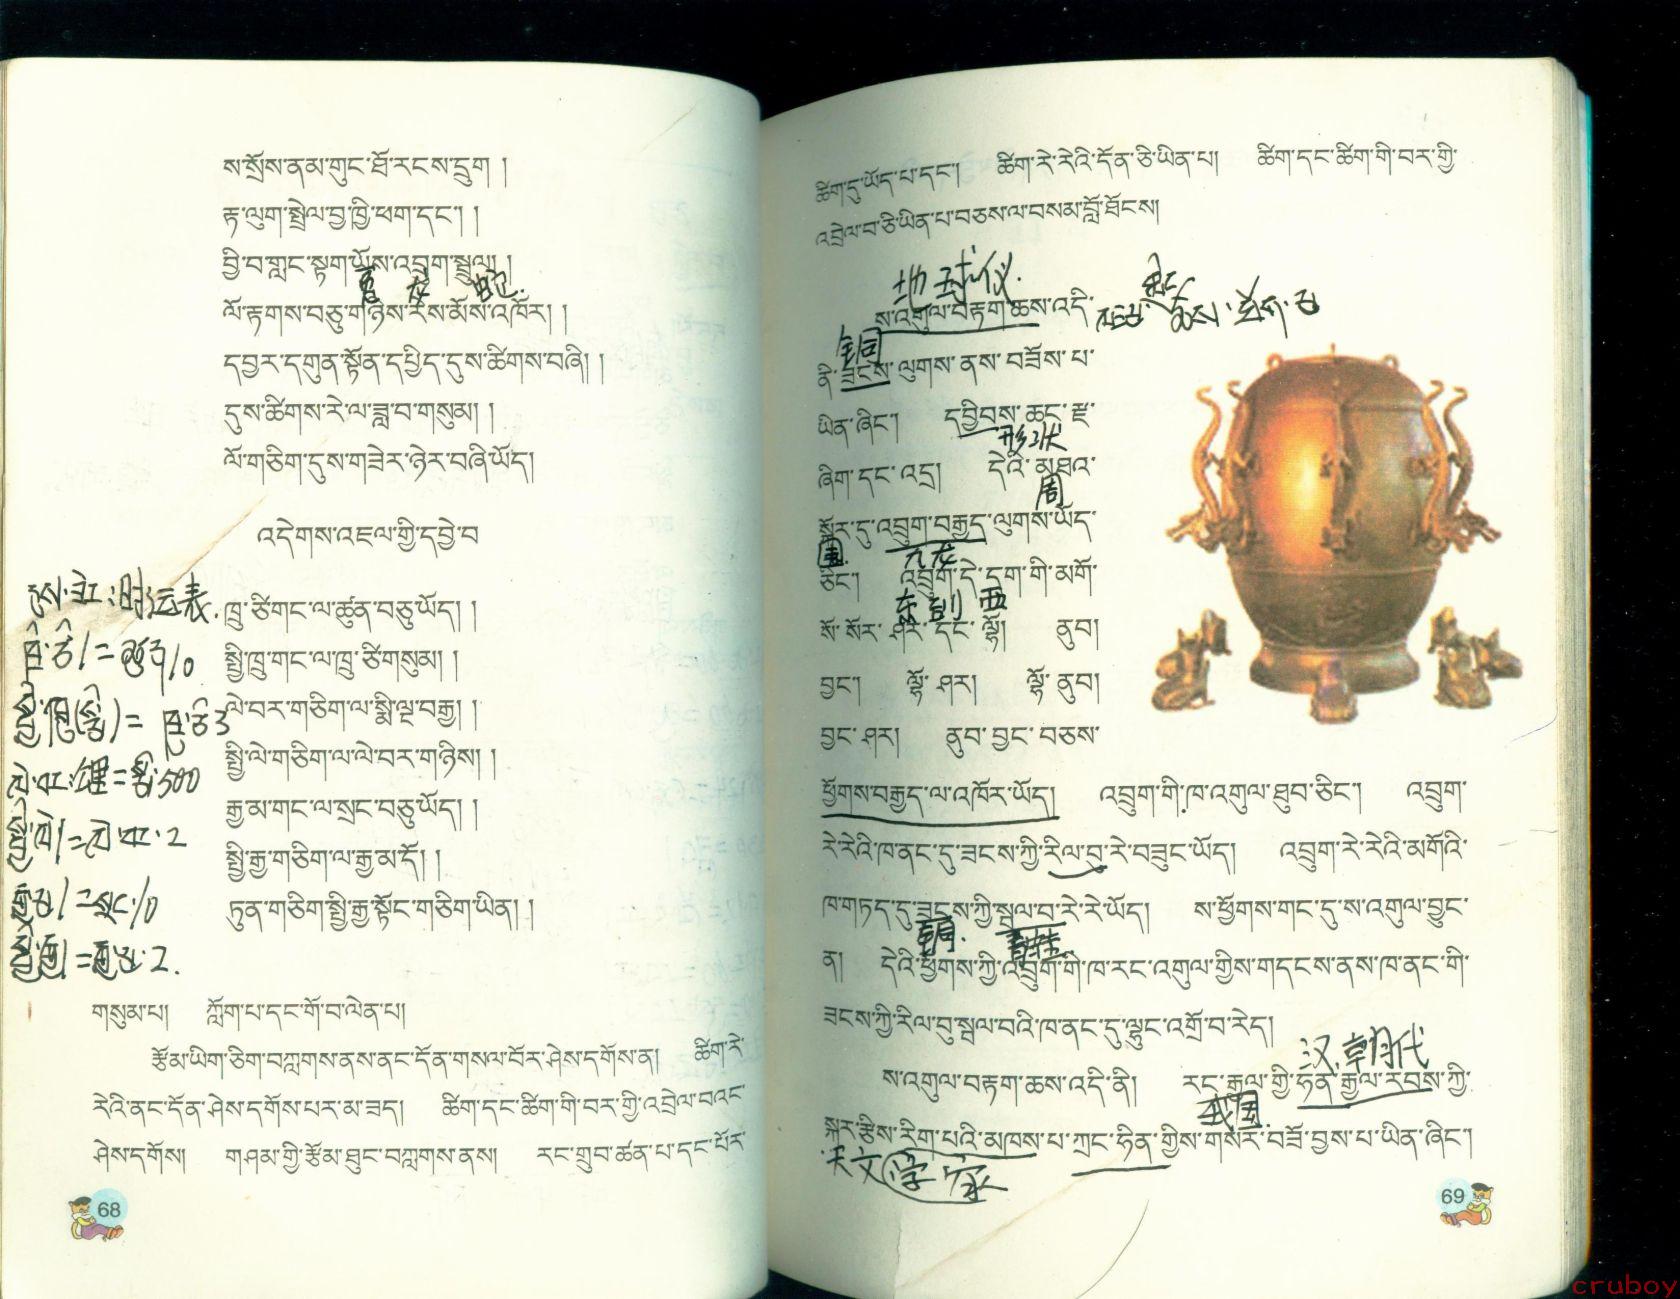 ས་སྲོས་ནམ་གུང་ཐོ་རངས་དྲུག །
རྟ་ལུག་སྤྲེལ་བྱ་ཁྱི་ཕག་དང་། །
བྱི་བ་གླང་སྟག་ཡོས་འབྲུག་སྦྲུལ། །
龙 蛇
ལོ་རྟགས་བཅུ་གཉིས་རེས་མོས་འཁོར། །
དབྱར་དགུན་སྟོན་དཔྱིད་དུས་ཚིགས་བཞི། །
དུས་ཚིགས་རེ་ལ་ཟླ་བ་གསུམ། །
ལོ་གཅིག་དུས་གཟེར་ཉེར་བཞི་ཡོད།
འདེགས་འཇལ་གྱི་དབྱེ་བ
ཁྲུ་ཙིགང་ལ་ཚུན་བཅུ་ཡོད། །
སྤྱི་ཁྲུ་གང་ལ་ཁྲུ་ཙིགསུམ། །
ལེ་བར་གཅིག་ལ་སྨི་ལྔ་བརྒྱ། །
སྤྱི་ལེ་གཅིག་ལ་ལེ་བར་གཉིས། །
རྒྱ་མ་གང་ལ་སྲང་བཅུ་ཡོད། །
སྤྱི་རྒྱ་གཅིག་ལ་རྒྱ་མ་དོ། །
ཏུན་གཅིག་སྤྱི་རྒྱ་སྟོང་གཅིག་ཡིན། །
གསུམ་པ། ཀློག་པ་དང་གོ་བ་ལེན་པ།
རྩོམ་ཡིག་ཅིག་བཀླགས་ནས་ནང་དོན་གསལ་བོར་ཤེས་དགོས་ན། ཚིག་རེ་
རེའི་ནང་དོན་ཤེས་དགོས་པར་མ་ཟད། ཚིག་དང་ཚིག་གི་བར་གྱི་འབྲེལ་བའང་
ཤེས་དགོས། གཤམ་གྱི་རྩོམ་ཐུང་བཀླགས་ནས། རང་གྲུབ་ཚན་པ་དང་པོར་
68
ཚིག་དུ་ཡོད་པ་དང་། ཚིག་རེ་རེའི་དོན་ཅི་ཡིན་པ། ཚིག་དང་ཚིག་གི་བར་གྱི་
འབྲེལ་བ་ཅི་ཡིན་པ་བཅས་ལ་བསམ་བློ་ཐོངས།
ས་འགུལ་བརྟག་ཆས་འདི་
ནི་ཟངས་ལུགས་ནས་བཟོས་པ་
ཡིན་ཞིང་། དབྱིབས་ཆང་རྫ་
形状
ཞིག་དང་འདྲ། དེའི་མཐའ་
周
སྐོར་དུ་འབྲུག་བརྒྱད་ལུགས་ཡོད་
围 九龙
ཅིང་། འབྲུག་དེ་དག་གི་མགོ་
སོ་སོར་ཤར་དང་ལྷོ། ནུབ།
བྱང་། ལྷོ་ཤར། ལྷོ་ནུབ།
བྱང་ཤར། ནུབ་བྱང་བཅས་
ཕྱོགས་བརྒྱད་ལ་འཁོར་ཡོད། འབྲུག་གི་ཁ་འགུལ་ཐུབ་ཅིང་། འབྲུག་
རེ་རེའི་ཁ་ནང་དུ་ཟངས་ཀྱི་རིལ་བུ་རེ་བཟུང་ཡོད། འབྲུག་རེ་རེའི་མགོའི་
ཁ་གཏད་དུ་ཟངས་ཀྱི་སྦལ་བ་རེ་རེ་ཡོད། ས་ཕྱོགས་གང་དུ་ས་འགུལ་བྱུང་
ན། དེའི་ཕྱོགས་ཀྱི་འབྲུག་གི་ཁ་རང་འགུལ་གྱིས་གདངས་ནས་ཁ་ནང་གི་
ཟངས་ཀྱི་རིལ་བུ་སྦལ་བའི་ཁ་ནང་དུ་ལྷུང་འགྲོ་བ་རེད།
汉 朝代
ས་འགུལ་བརྟག་ཆས་འདི་ནི། རང་རྒྱལ་གྱི་ཧན་རྒྱལ་རབས་ཀྱི་
我国
སྐར་རྩིས་རིག་པའི་མཁས་པ་ཀྲང་ཧིན་གྱིས་གསར་བཟོ་བྱས་པ་ཡིན་ཞིང་།
天文学家
69
cruboy